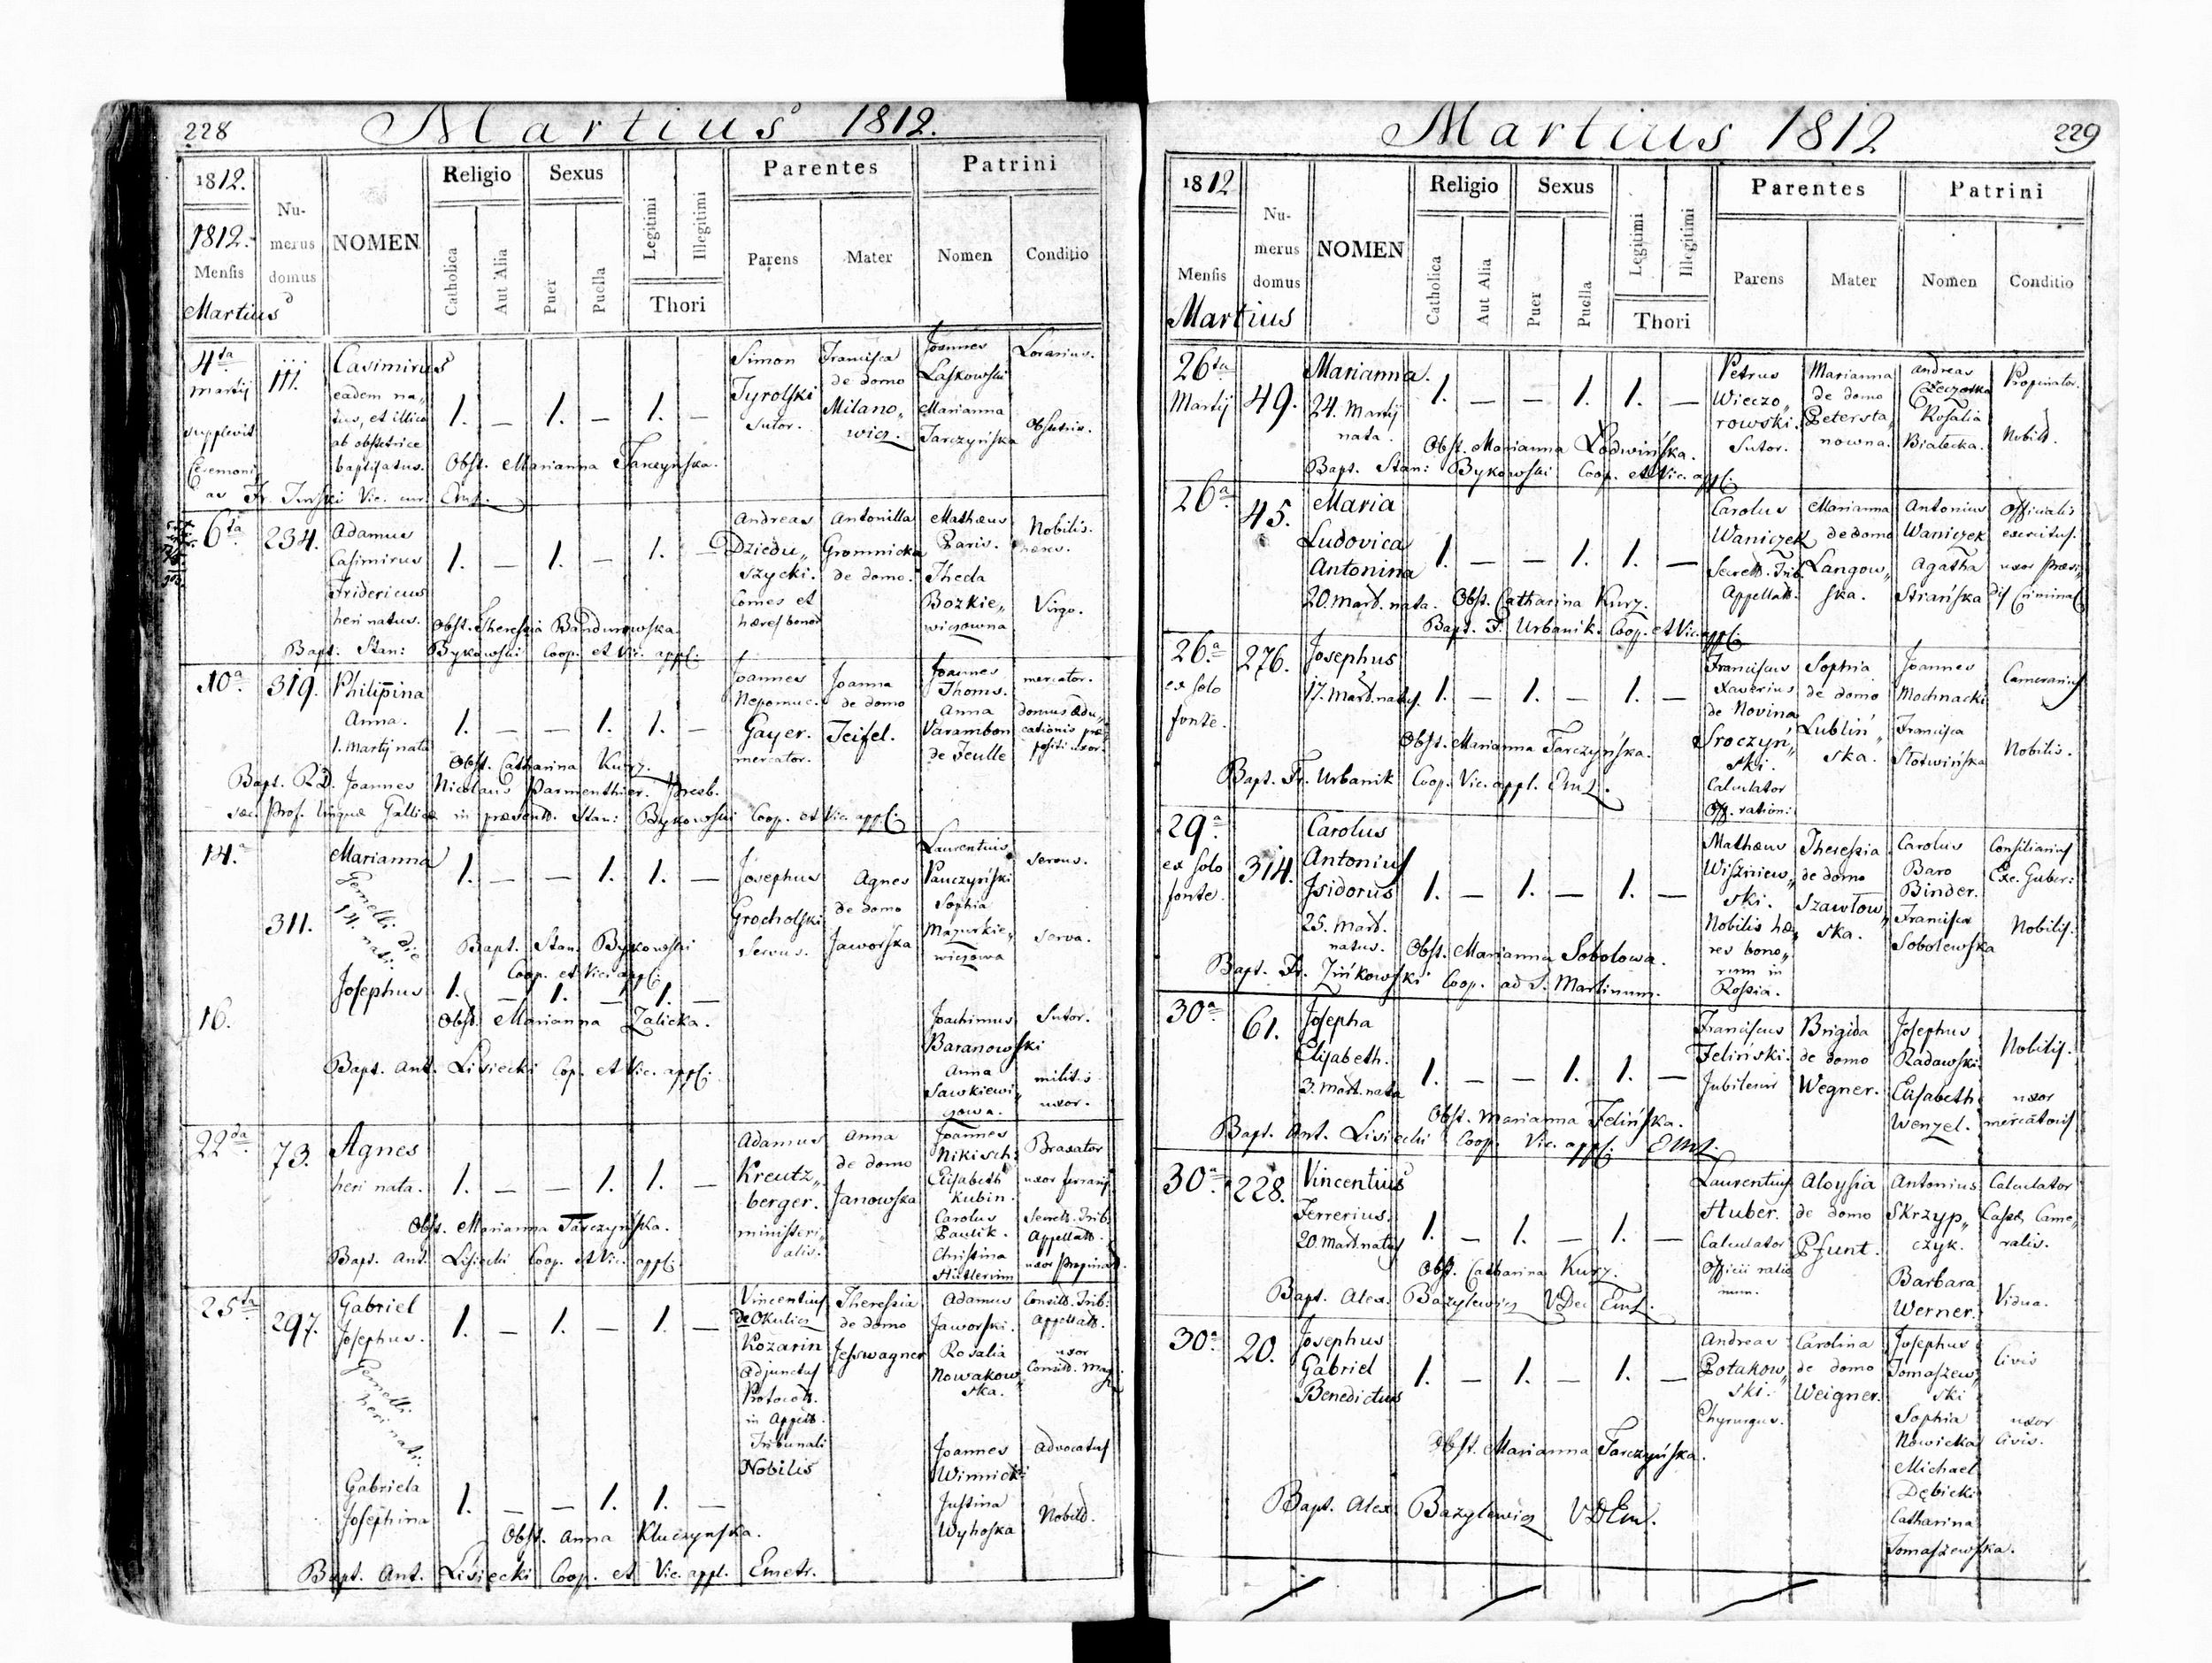 228
Martius 1812.
1812.
1812.
Mensis
Martius
Numerus domus
NOMEN
Religio
Catholica
Aut Alia
Sexus
Puer
Puella
Legitimi
Illegitimi
Thori
Parentes
Parens
Mater
Patrini
Nomen
Conditio
4ta
Martij
supplevit
Ceremoni
as Fr.
111.
Casimirus
eadem na„
tus, et illico
ab obstetrice
baptisatus.
1. — 1. — 1. —
Obst. Marianna Tarczyńska.
Vic. cur. Emt.
Simon
Tyrolski
Sutor.
Francisca
de domo
Milano„
wicz.
Joannes
Laskowski
Marianna
Tarczyńska
Lorarius.
Obstetrix.
6ta
234.
Adamus
Casimirus
Fridericus
heri natus.
1. — 1. — 1. —
Obst. Theressia Bandurowska.
Bapt. Stan: Bykowski Coop. et Vic. appl:
Andreas
Dziedu„
szycki.
Comes et
hæres bonor
Antonilla
Gromnicka
de domo.
Mathæus
Paris.
Thecla
Bozkie„
wiczowna
Nobilis.
Virgo.
10a
319.
Philipina
Anna.
1. Martij nata
1. — — 1. 1. —
Obst. Catharina Kurz.
Bapt. R.D. Joannes Nicolaus Parmenthier. Presb.
sæc. Prof. linguæ Gallicæ in præsentia Stan: Bykowski Coop. et Vic. appl:
Joannes
Nepomuc.
Gayer.
mercator.
Joanna
de domo
Teifel.
Joannes
Thoms.
Anna
Varambon
de Feulle
mercator.
domus Edu„
cationis præ„
positi uxor.
14.a
311.
Marianna
Gemelli die
14. nati.
1. — — 1. 1. —
Bapt. Stan. Bykowski
Coop. et Vic. appl:
Josephus
Grocholski
Servus.
Agnes
de domo
Jaworska
Laurentius
Panczyński
Sophia
Mazurkie„
wiczowa
servus.
serva.
16.
Josephus
1. — 1. — 1. —
Obst. Marianna Zalicka.
Bapt. Ant. Lisiecki Cop. et Vic. appl:
Joachimus
Baranowski
Anna
Sawkiewi„
czowa.
Sutor.
militis
uxor.
22da
73.
Agnes
heri nata.
1. — — 1. 1. —
Obst. Marianna Tarczyńska.
Bapt. Ant. Lisiecki Coop. et Vic. appl:
Adamus
Kreutz„
berger.
ministeri„
alis.
Anna
de domo
Janowska
Joannes
Nikisch.
Elisabeth
Kubin.
Carolus
Pawlik.
Christina
Hütlerinn
Braxator
uxor serrarij
Secrett. Trib.
Appellatt.
uxor propinat.
25ta
297.
Gabriel
Josephus.
Gemelli
heri nati.
1. — 1. — 1. —
Vincentius
de Okulicz
Kozarin
Adjunctus
Protocoll.
in Appell.
Tribunali
Nobilis
Theressia
de domo
Jesswagner
Adamus
Jaworski.
Rosalia
Nowakow„
ska.
Consill. Trib:
Appellatt.
uxor
Consill. Mag:
Gabriela
Josephina
1. — — 1. 1. —
Obst. Anna Kluczynska.
Bapt. Ant. Lisiecki Coop. et Vic. appl. Emetr.
Joannes
Winnicki
Justina
Wyhoska
Advocatus
Nobilis.
Martius 1812
229
1812
Mensis
Martius
Numerus domus
NOMEN
Religio
Catholica
Aut Alia
Sexus
Puer
Puella
Legitimi
Illegitimi
Thori
Parentes
Parens
Mater
Patrini
Nomen
Conditio
26ta
Martij
49.
Marianna.
24. Martij
nata.
1. — — 1. 1. —
Obst. Marianna Lodwińska.
Bapt. Stan: Bykowski Coop. et Vic. appl:
Petrus
Wieczo„
rowski.
Sutor.
Marianna
de domo
Petersta„
nowna.
Andreas
Rosalia
Bialecka.
Propinator.
Nobilis.
26a
45.
Maria
Ludovica
Antonina
20. Mart. nata.
1. — — 1. 1. —
Obst. Catharina Kurz.
Bapt. F. Urbanik. Coop. et Vic. appl:
Carolus
Waniczek
Secrett. Trib.
Appellatt.
Marianna
de domo
Langow„
ska.
Antonius
Waniczek
Agatha
Strańska
Officialis
exercitus.
uxor Præsi„
dis Criminal
26.a
ex solo
fonte.
276.
Josephus
17. Mart. natus.
1. — 1. — 1. —
Obst. Marianna Tarczyńska.
Bapt. Fr. Urbanik Coop. Vic. appl. Emt.
Franciscus
Xaverius
de Novina
Sroczyń„
ski.
Calculator
Off. ration:
Sophia
de domo
Lubliń„
ska.
Joannes
Mochnacki
Francisca
Slotwińska
Camerarius
Nobilis.
29.a
ex solo
fonte.
314.
Carolus
Antonius
Isidorus
25. Mart.
natus.
1. — 1. — 1. —
Obst. Marianna Sobolowa.
Bapt. Fr. Zińkowski Coop. ad S. Martinum.
Mathæus
Wiszniew„
ski.
Nobilis hæ„
res bono„
rum in
Rossia.
Theressia
de domo
Szawlow„
ska.
Carolus
Baro
Binder.
Francisca
Sobolewska
Consiliarius
Exc. Guber:
Nobilis.
30a
61.
Josepha
Elisabeth.
3. Mart. nata
1. — — 1. 1. —
Obst. Marianna Felińska.
Bapt. Ant. Lisiecki Coop. Vic. appl: Emt.
Franciscus
Feliński.
Brigida
de domo
Wegner.
Josephus
Radawski.
Elisabeth
Wenzel.
Nobilis.
uxor
mercatoris
30a
228.
Vincentius
Ferrerius.
20. Mart. natus
1. — 1. — 1. —
Obst. Catharina Kurz.
Bapt. Alex. Bazylewicz VDec Emt.
Laurentius
Huber.
Calculator
Officii ratio
num.
Aloysia
de domo
Pfunt.
Antonius
Skrzyp„
czyk.
Barbara
Werner.
Calculator
Cassæ Came„
ralis.
Vidua.
30a
20.
Josephus
Gabriel
Benedictus
1. — 1. — 1. —
Obst. Marianna Tarczyńska.
Bapt. Alex. Bazylewicz VDEm.
Andreas
Potakow„
ski.
Chyrurgus.
Carolina
de domo
Weigner.
Josephus
Tomaszew„
ski
Sophia
Nowicka
Michael
Dębicki
Catharina
Tomaszewska.
Civis
uxor
Civis.